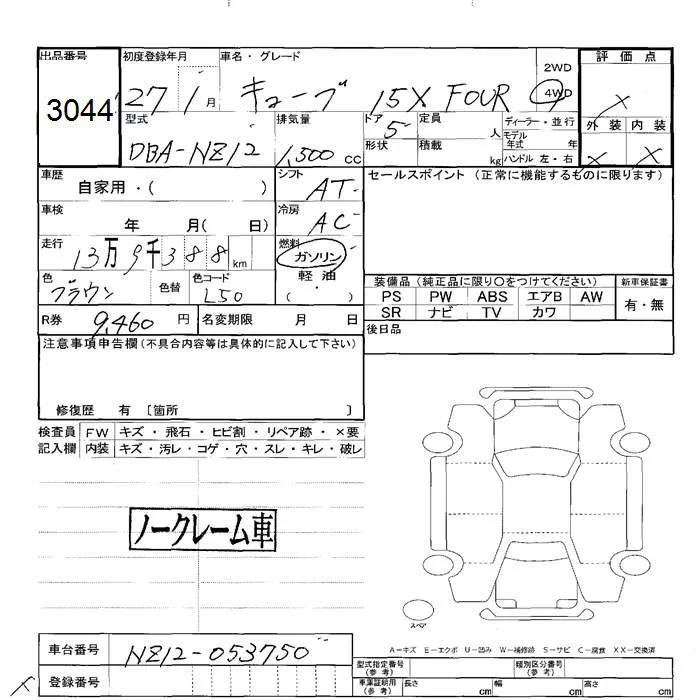 出品番号 初度登録年月 車名・グレード 評価点
3044 27 1月 キューブ 15X FOUR 2WD 4WD X
型式 排気量 ドア 定員 ディーラー・並行 外装 内装
DBA-NZ12 1,500cc 5 人 モデル年式 年
形状 積載 kg ハンドル 左・右 X X
車歴 自家用・( ) シフト AT セールスポイント (正常に機能するものに限ります)
車検 年 月( 日) 冷房 AC
走行 13万9千388km 燃料 ガソリン
軽油
( ・ )
色 ブラウン 色替 色コード L50
装備品 (純正品に限り○をつけてください) 新車保証書
PS PW ABS エアB AW 有・無
SR ナビ TV カワ
R券 9,460円 名変期限 月 日 後日品
注意事項申告欄(不具合内容等は具体的に記入して下さい)
修復歴 有 〔箇所 〕
検査員 FW キズ・飛石・ヒビ割・リペア跡・×要
記入欄 内装 キズ・汚レ・コゲ・穴・スレ・キレ・破レ
ノークレーム車
スペア
A-キズ E-エクボ U-凹み W-補修跡 S-サビ C-腐食 XX-交換済
車台番号 NZ12-053750
登録番号
型式指定番号(参考) 類別区分番号(参考)
車庫証明用(参考) 長さ cm 幅 cm 高さ cm
X